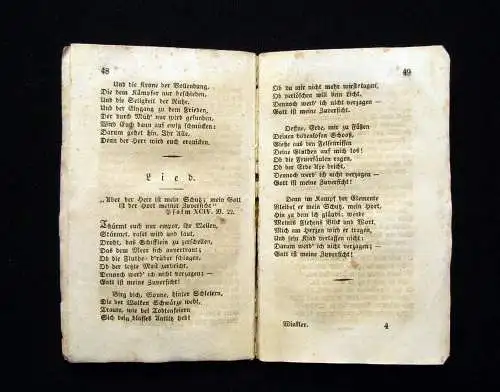 48
Und die Krone der Vollendung,
Die dem Kämpfer nur beschieden,
Und die Seligkeit der Ruhe,
Und der Eingang zu dem Frieden,
Der durch Müh' nur wird gefunden,
Wird Euch dann auf ewig schmücken:
Darum gehet hin, Ihr Alle,
Denn der Herr wird euch erquicken.
Lied.
„Aber der Herr ist mein Schutz; mein Gott
ist der Hort meiner Zuversicht“
Psalm XCIV. V. 22.
Thürmt euch nur empor, ihr Wellen,
Stürmet, rost wild und laut,
Droht, das Schifflein zu zerschellen,
Das dem Meer sich anvertraut;
Ob die Fluthen d'rüber schlagen,
Ob der letzte Mast zerbricht,
Dennoch werd' ich nicht verzagen —
Gott ist meine Zuversicht!
Birg dich, Sonne, hinter Schleiern,
Die der Wolken Schwärze webt,
Traure, wie bei Todtenfeiern
Sich dein blasses Antlitz hebt!
49
Ob du mir nicht mehr wirst tagen,
Ob verlöschen will dein Licht,
Dennoch werd' ich nicht verzagen —
Gott ist meine Zuversicht!
Oeffne, Erde, mir zu Füßen
Deinen bodenlosen Schooß,
Gieße aus den Felsenrissen
Deine Gluthen auf mich los!
Ob die Feuersäulen ragen,
Ob der Erde Axe bricht,
Dennoch werd' ich nicht verzagen —
Gott ist meine Zuversicht!
Denn im Kampf der Elemente
Bleibet er mein Schutz, mein Hort,
Hin zu dem ich gläubig wende
Meines Flehens Blick und Wort.
Mich am Herzen wird er tragen,
Und sein Kind verläßt er nicht;
Darum werd' ich nicht verzagen;
Gott ist meine Zuversicht!
Winkler.
4